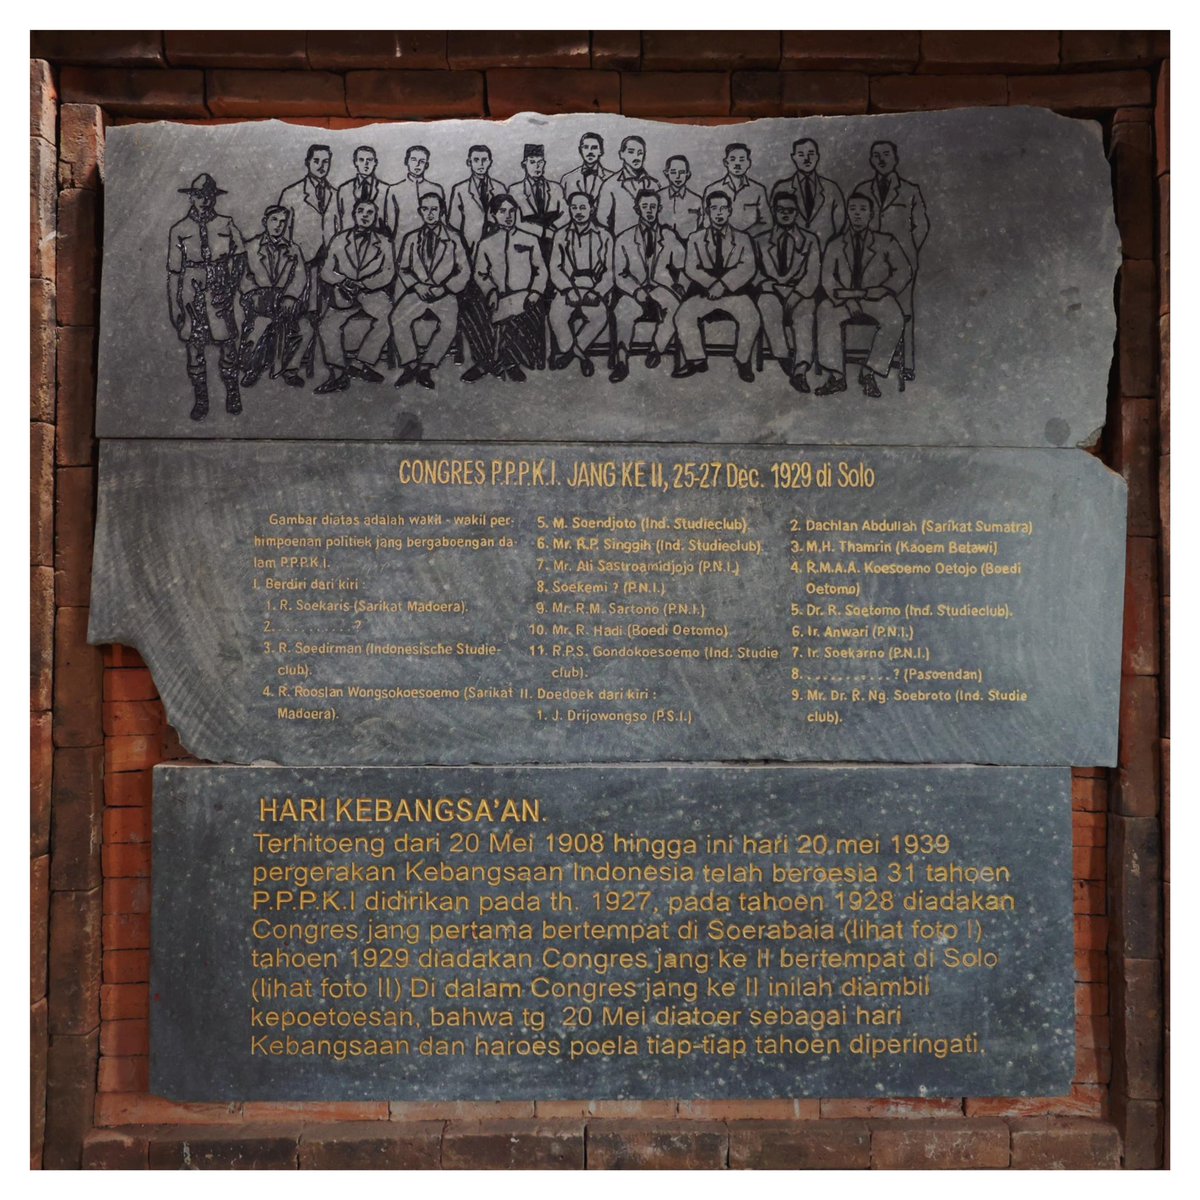 CONGRES P.P.P.K.I. JANG KE II, 25-27 Dec. 1929 di Solo
Gambar diatas adalah wakil - wakil per-
himpoenan politiek jang bergaboengan da-
lam P.P.P.K.I.
I. Berdiri dari kiri :
1. R. Soekaris (Sarikat Madoera).
2. . . . . . . . . . . ?
3. R. Soedirman (Indonesische Studie-
club).
4. R. Rooslan Wongsokoesoemo (Sarikat
Madoera).
5. M. Soendjoto (Ind. Studieclub).
6. Mr. R.P. Singgih (Ind. Studieclub).
7. Mr. Ali Sastroamidjojo (P.N.I.)
8. Soekemi ? (P.N.I.)
9. Mr. R.M. Sartono (P.N.I.)
10. Mr. R. Hadi (Boedi Oetomo).
11. R.P.S. Gondokoesoemo (Ind. Studie
club).
II. Doedoek dari kiri :
1. J. Drijowongso (P.S.I.)
2. Dachlan Abdullah (Sarikat Sumatra)
3. M.H. Thamrin (Kaoem Betawi)
4. R.M.A.A. Koesoemo Oetojo (Boedi
Oetomo)
5. Dr. R. Soetomo (Ind. Studieclub).
6. Ir. Anwari (P.N.I.)
7. Ir. Soekarno (P.N.I.)
8. . . . . . . . . . . . ? (Pasoendan)
9. Mr. Dr. R. Ng. Soebroto (Ind. Studie
club).
HARI KEBANGSA'AN.
Terhitoeng dari 20 Mei 1908 hingga ini hari 20 mei 1939
pergerakan Kebangsaan Indonesia telah beroesia 31 tahoen
P.P.P.K.I didirikan pada th. 1927, pada tahoen 1928 diadakan
Congres jang pertama bertempat di Soerabaia (lihat foto I)
tahoen 1929 diadakan Congres jang ke II bertempat di Solo
(lihat foto II) Di dalam Congres jang ke II inilah diambil
kepoetoesan, bahwa tg 20 Mei diatoer sebagai hari
Kebangsaan dan haroes poela tiap-tiap tahoen diperingati.